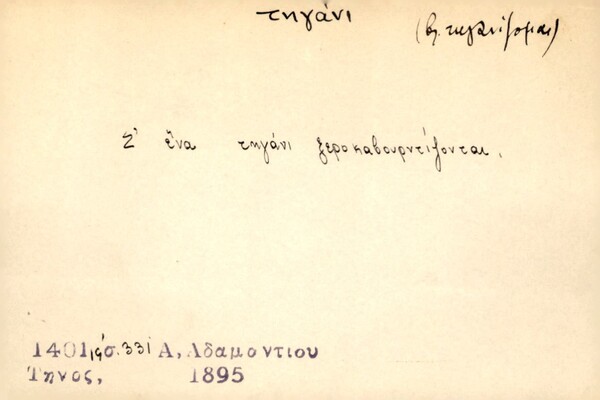 τηγάνι
(βλ. τηγανίζομαι)
Σ' ἕνα τηγάνι ξεροκαβουρντίζονται.
1401, σ. 331 Α, Αδαμοντιου
Τηνος, 1895